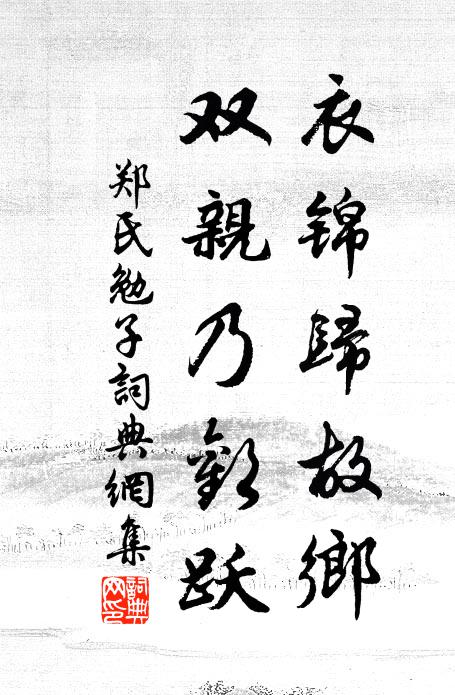 衣錦歸故鄉
双親乃歡跃
郑氏勉子詞典網集
詞典網印